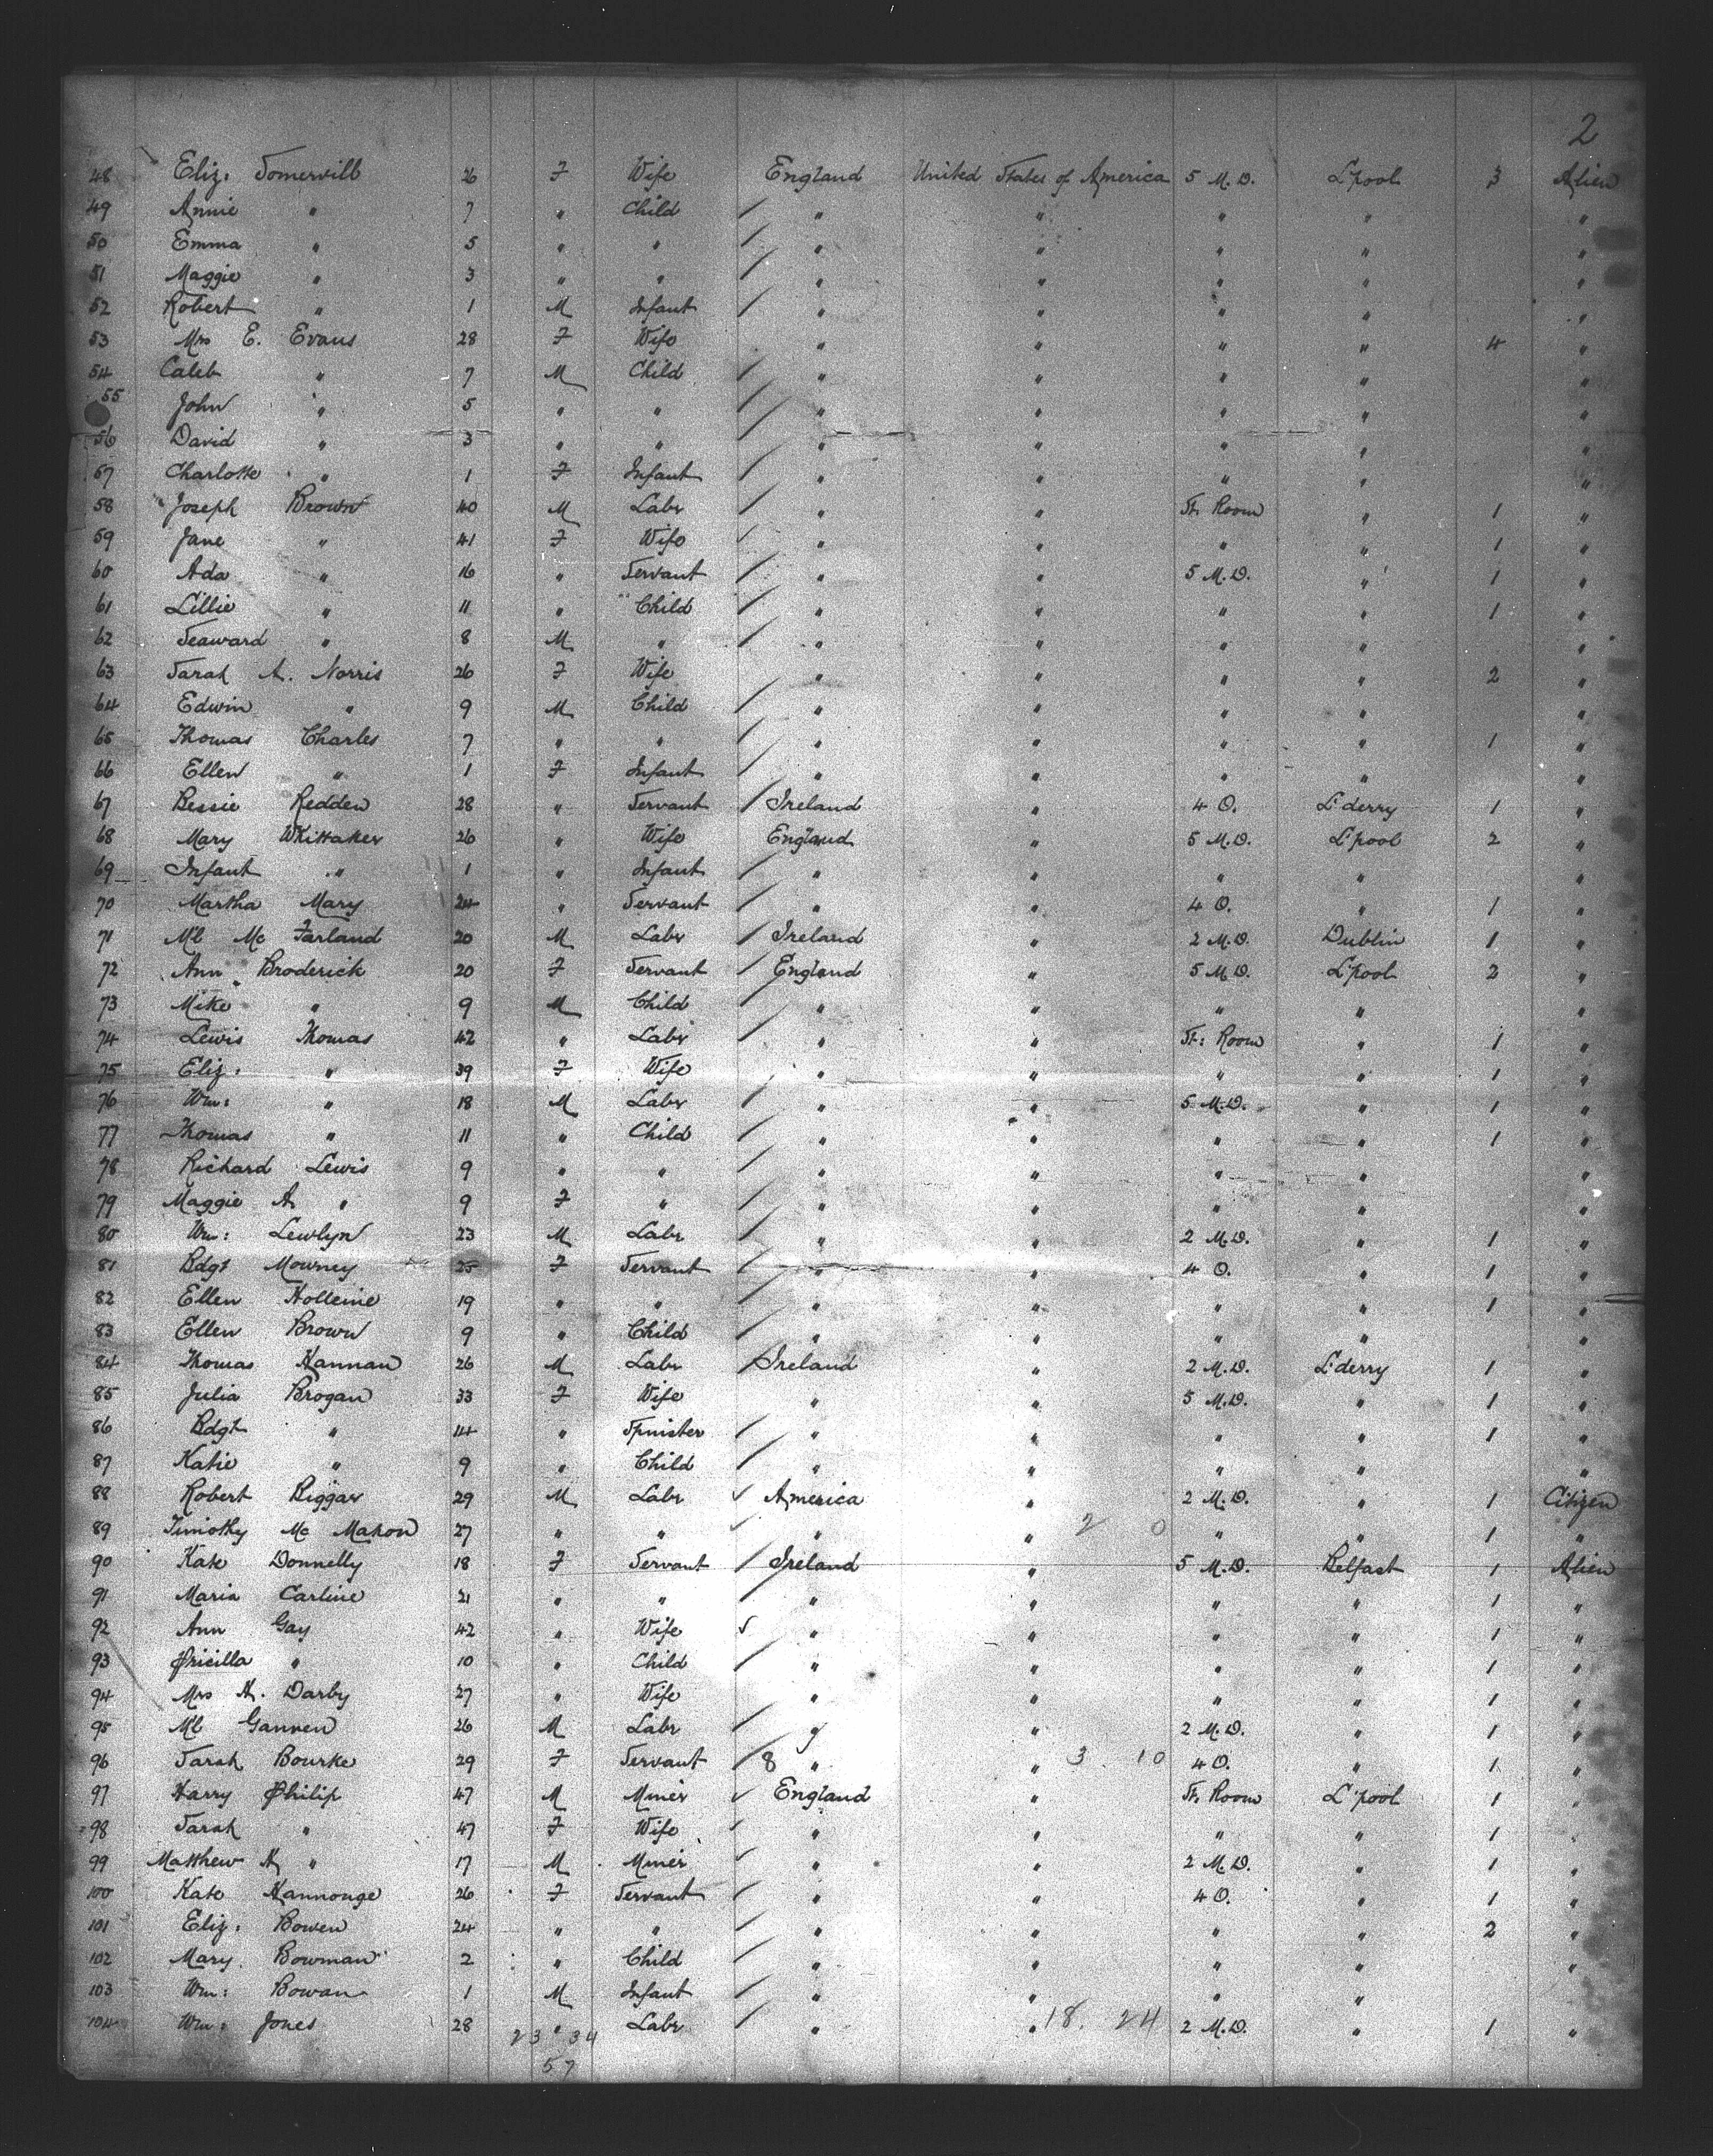 2
48 Eliz: Somervill 26 F Wife England United States of America 5 M.D. L'pool 3 Alien
49 Annie " 7 " Child / " " " " "
50 Emma " 5 " " / " " " " "
51 Maggie " 3 " " / " " " " "
52 Robert " 1 M Infant / " " " " "
53 Mrs E. Evans 28 F Wife " " " " 4 "
54 Caleb " 7 M Child / " " " " "
55 John " 5 " " / " " " " "
56 David " 3 " " / " " " " "
57 Charlotte " 1 F Infant / " " " " "
58 Joseph Brown 40 M Labr / " " St. Room " 1 "
59 Jane " 41 F Wife " " " " 1 "
60 Ada " 16 " Servant / " " 5 M.D. " 1 "
61 Lillie " 11 " Child / " " " " 1 "
62 Seaward " 8 M " / " " " " "
63 Sarah A. Norris 26 F Wife " " " " 2 "
64 Edwin " 9 M Child / " " " " "
65 Thomas Charles 7 " " / " " " " 1 "
66 Ellen " 1 F Infant / " " " " "
67 Bessie Redden 28 " Servant / Ireland " 4 O. L'derry 1 "
68 Mary Whittaker 26 " Wife England " 5 M.D. L'pool 2 "
69 Infant " 1 " Infant / " " " " "
70 Martha Mary 24 " Servant / " " 4 O. " 1 "
71 Ml Mc Farland 20 M Labr / Ireland " 2 M.D. Dublin 1 "
72 Ann Broderick 20 F Servant / England " 5 M.D. L'pool 2 "
73 Mike " 9 M Child / " " " " "
74 Lewis Thomas 42 " Labr / " " St: Room " 1 "
75 Eliz: " 39 F Wife " " " " 1 "
76 Wm: " 18 M Labr / " " 5 M.D. " 1 "
77 Thomas " 11 " Child / " " " " 1 "
78 Richard Lewis 9 " " / " " " " "
79 Maggie A " 9 F " / " " " " "
80 Wm: Lewlyn 23 M Labr / " " 2 M.D. " 1 "
81 Bdgt Mowney 25 F Servant / " " 4 O. " 1 "
82 Ellen Holleine 19 " " / " " " " 1 "
83 Ellen Brown 9 " Child / " " " " "
84 Thomas Hannan 26 M Labr / Ireland " 2 M.D. L'derry 1 "
85 Julia Brogan 33 F Wife " " 5 M.D. " 1 "
86 Bdgt " 14 " Spinister / " " " " 1 "
87 Katie " 9 " Child / " " " " "
88 Robert Biggar 29 M Labr ✓ America " 2 M.D. " 1 Citizen
89 Timothy Mc Mahon 27 " " ✓ " " 2 0 " " 1 "
90 Kate Donnelly 18 F Servant / Ireland " 5 M.D. Belfast 1 Alien
91 Maria Carline 21 " " / " " " " 1 "
92 Ann Gay 42 " Wife ✓ " " " " 1 "
93 Pricilla " 10 " Child / " " " " 1 "
94 Mrs H. Darby 27 " Wife " " " " 1 "
95 Ml Gannen 26 M Labr / " " 2 M.D. " 1 "
96 Sarah Bourke 29 F Servant / 8 " " 3 10 4 O. " 1 "
97 Harry Philip 47 M Miner ✓ England " St. Room L'pool 1 "
98 Sarah " 47 F Wife ✓ " " " " 1 "
99 Matthew H " 17 M Miner ✓ " " 2 M.D. " 1 "
100 Kate Hannonge 26 F Servant / " " 4 O. " 1 "
101 Eliz: Bowen 24 " " / " " " " 2 "
102 Mary Bowman 2 " Child / " " " " "
103 Wm: Bowan 1 M Infant / " " " "
104 Wm: Jones 28 " Labr / " " 18. 24 2 M.D. " 1 "
23 34
57